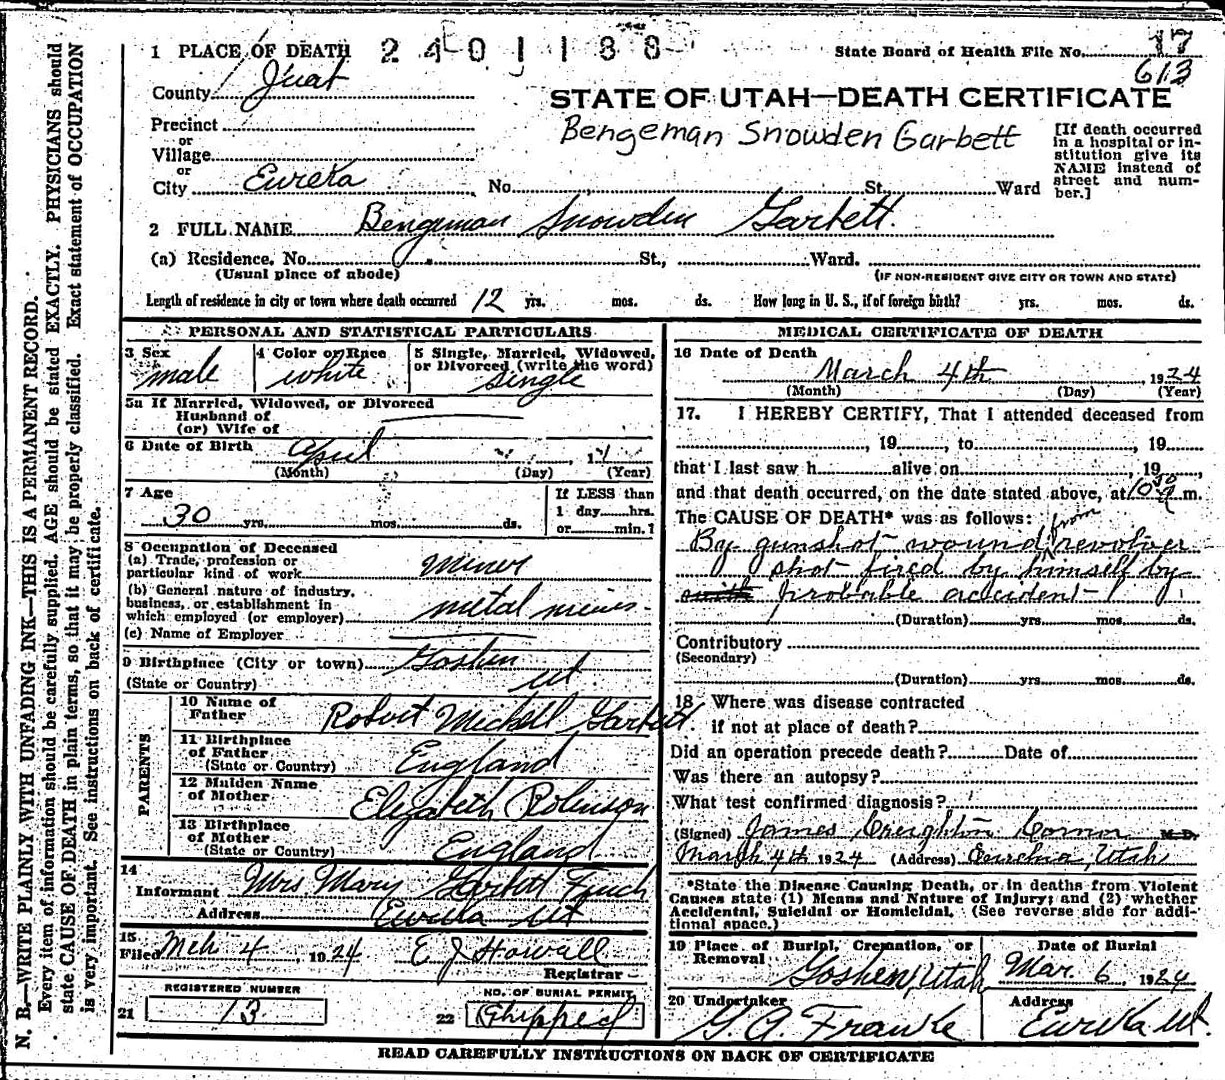 1 PLACE OF DEATH 2401188 State Board of Health File No. 17
613
County Juab
STATE OF UTAH—DEATH CERTIFICATE
Bengeman Snowden Garbett
Precinct
or
Village
or
City Eureka No. St. Ward
[If death occurred
in a hospital or in-
stitution give its
NAME instead of
street and num-
ber.]
2 FULL NAME Bengeman Snowden Garbett.
(a) Residence. No. St., Ward.
(Usual place of abode) (IF NON-RESIDENT GIVE CITY OR TOWN AND STATE)
Length of residence in city or town where death occurred 12 yrs. mos. ds. How long in U. S., if of foreign birth? yrs. mos. ds.
PERSONAL AND STATISTICAL PARTICULARS
3 Sex
male
4 Color or Race
white
5 Single, Married, Widowed,
or Divorced (write the word)
single
5a If Married, Widowed, or Divorced
Husband of
(or) Wife of
6 Date of Birth April
(Month) (Day) (Year)
7 Age
30 yrs. mos. ds.
If LESS than
1 day hrs.
or min.?
8 Occupation of Deceased
(a) Trade, profession or
particular kind of work Miner
(b) General nature of industry,
business, or establishment in
which employed (or employer) metal mines
(c) Name of Employer
9 Birthplace (City or town) Goshen
(State or Country) Ut.
PARENTS
10 Name of
Father Robert Mickell Garbett.
11 Birthplace
of Father
(State or Country) England
12 Maiden Name
of Mother Elizabeth Robinson
13 Birthplace
of Mother
(State or Country) England
14
Informant Mrs Mary Garbett Finch
Address Eureka Ut
15
Filed Mch 4, 1924 E J Howell
Registrar
REGISTERED NUMBER
21 13
NO. OF BURIAL PERMIT
22 Shipped
MEDICAL CERTIFICATE OF DEATH
16 Date of Death
March 4th, 1924
(Month) (Day) (Year)
17. I HEREBY CERTIFY, That I attended deceased from
, 19, to, 19
that I last saw h alive on, 19,
and that death occurred, on the date stated above, at 10 30 m.
The CAUSE OF DEATH* was as follows:
By gunshot wound from revolver
shot fired by himself by
probable accident
(Duration) yrs. mos. ds.
Contributory
(Secondary)
(Duration) yrs. mos. ds.
18 Where was disease contracted
if not at place of death?
Did an operation precede death? Date of
Was there an autopsy?
What test confirmed diagnosis?
(Signed) James Creighton M.D.
March 4th 1924 (Address) Eureka, Utah
*State the Disease Causing Death, or in deaths from Violent
Causes state (1) Means and Nature of Injury; and (2) whether
Accidental, Suicidal or Homicidal. (See reverse side for addi-
tional space.)
19 Place of Burial, Cremation, or
Removal
Goshen, Utah
Date of Burial
Mar. 6, 1924
20 Undertaker
G. A. Franke
Address
Eureka Ut.
READ CAREFULLY INSTRUCTIONS ON BACK OF CERTIFICATE
N. B.—WRITE PLAINLY WITH UNFADING INK—THIS IS A PERMANENT RECORD.
Every item of information should be carefully supplied. AGE should be stated EXACTLY. PHYSICIANS should
state CAUSE OF DEATH in plain terms, so that it may be properly classified. Exact statement of OCCUPATION
is very important. See instructions on back of certificate.